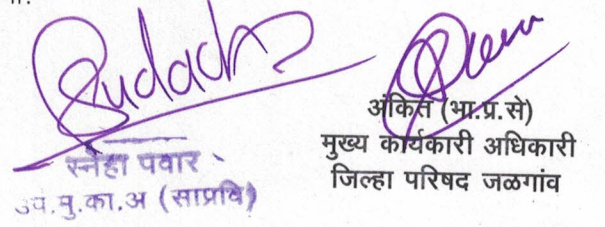 स्नेहा पवार
उप.मु.का.अ (साप्रवि)
अंकित (भा.प्र.से)
मुख्य कार्यकारी अधिकारी
जिल्हा परिषद जळगांव